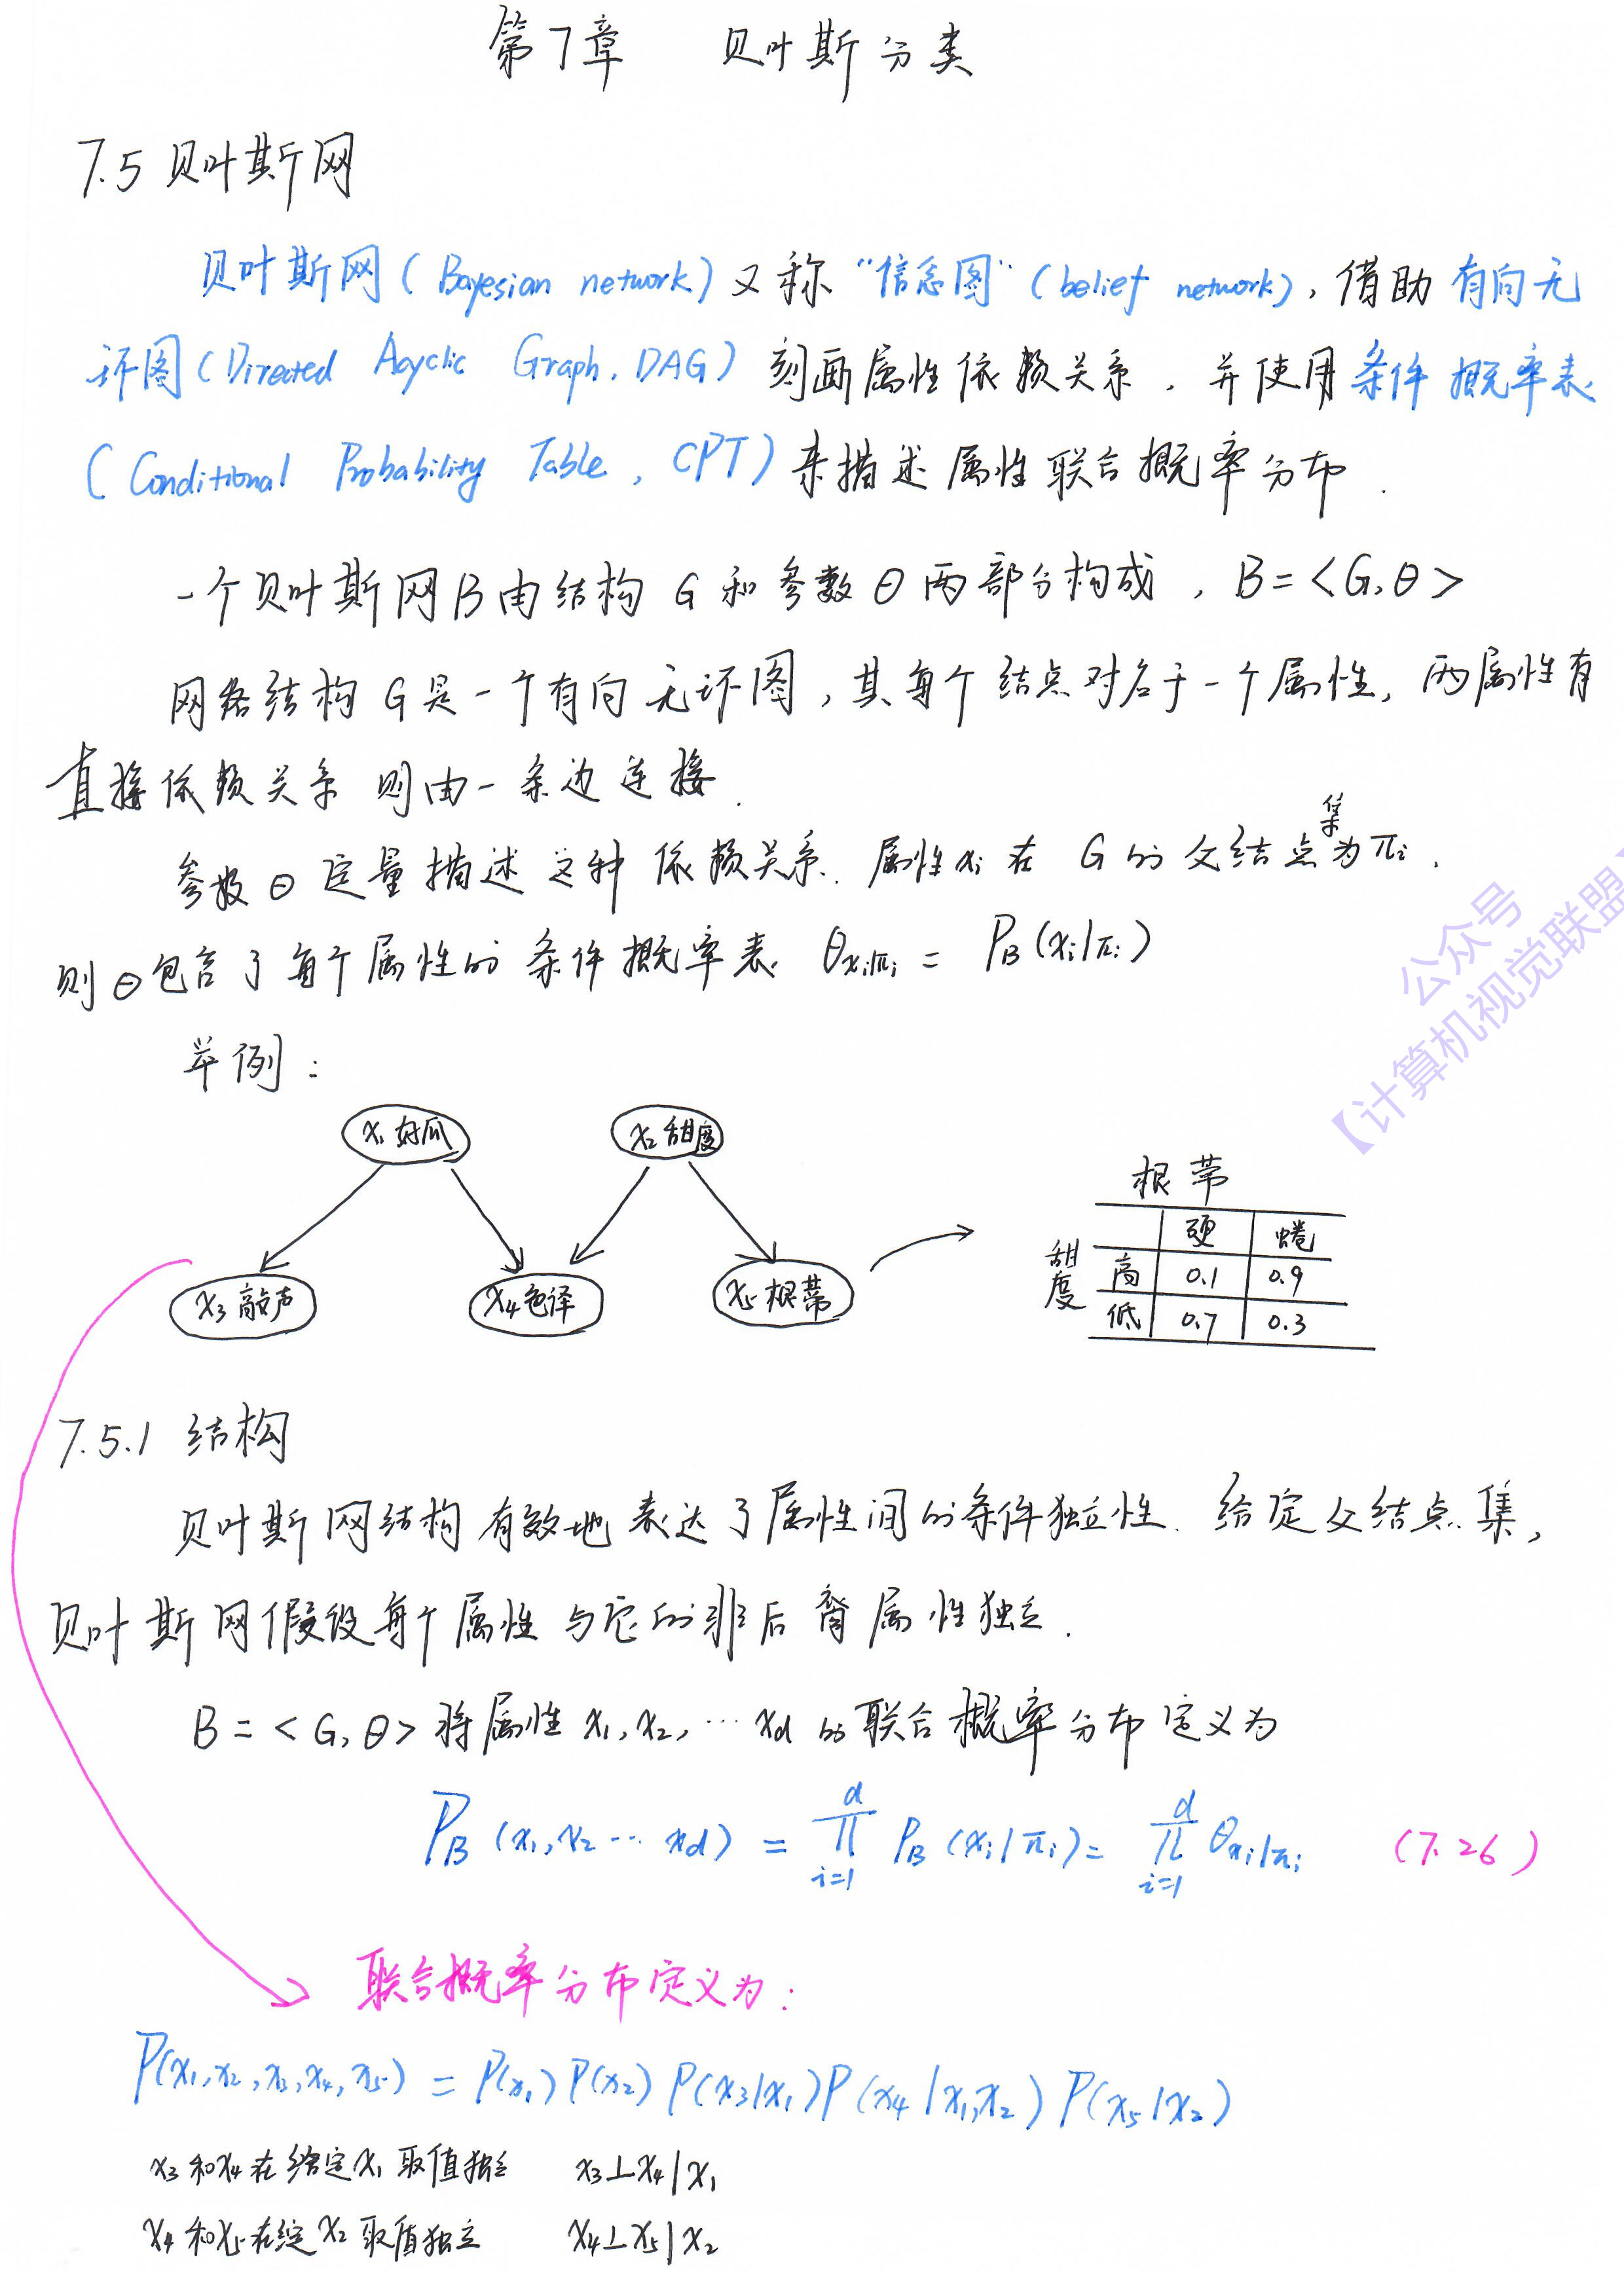 第7章 贝叶斯分类
7.5 贝叶斯网
贝叶斯网(Bayesian network)又称"信念图"(belief network),借助有向无
环图(Directed Acyclic Graph, DAG)刻画属性依赖关系,并使用条件概率表
(Conditional Probability Table, CPT)来描述属性联合概率分布.
一个贝叶斯网B由结构G和参数θ两部分构成,B=<G,θ>
网络结构G是一个有向无环图,其每个结点对应于一个属性,两属性有
直接依赖关系则由一条边连接.
集
参数θ定量描述这种依赖关系.属性xi在G的父结点为πi.
则θ包含了每个属性的条件概率表 θxi|πi = PB(xi|πi)
公众号
【计算机视觉联盟】
举例:
x1 好瓜 x2 甜度
根蒂
硬 蜷
甜度 高 0.1 0.9
低 0.7 0.3
x3 敲声 x4 色泽 x5 根蒂
7.5.1 结构
贝叶斯网结构有效地表达了属性间的条件独立性.给定父结点集,
贝叶斯网假设每个属性与它的非后裔属性独立.
B=<G,θ>将属性x1,x2,…xd的联合概率分布定义为
PB(x1,x2…xd) = ∏ᵈᵢ₌₁ PB(xi|πi) = ∏ᵈᵢ₌₁ θxi|πi (7.26)
联合概率分布定义为:
P(x1,x2,x3,x4,x5) = P(x1)P(x2)P(x3|x1)P(x4|x1,x2)P(x5|x2)
x3和x4在给定x1取值独立 x3⊥x4|x1
x4和x5在给定x2取值独立 x4⊥x5|x2